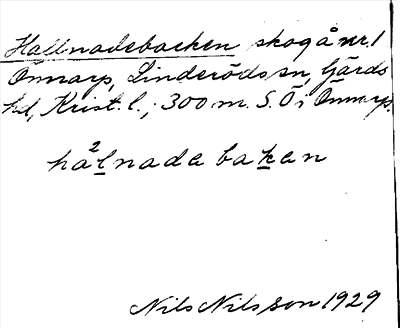 Hallnadebacken skog å nr. 1
Önnarp, Linderöds sn, Gärds
hd, Krist. l.; 300 m. S.Ö i Önnarp.
ha²lnade baken
Nils Nilsson 1929